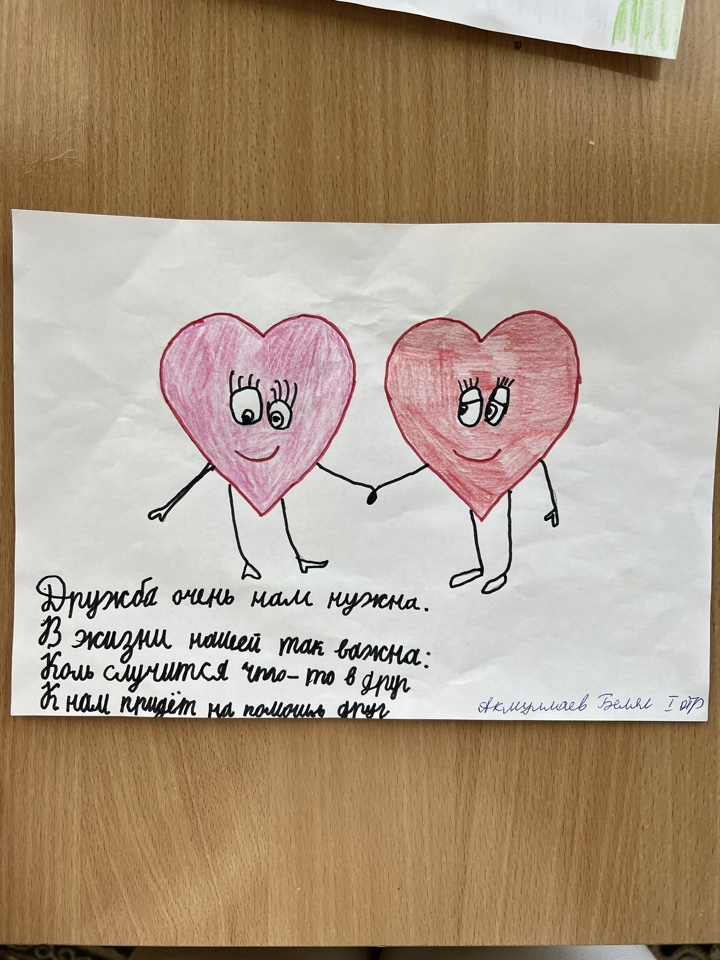 Дружба очень нам нужна.
В жизни нашей так важна:
Коль случится что-то в друг
К нам придёт на помощь друг
Акмуллаев Белял I отр